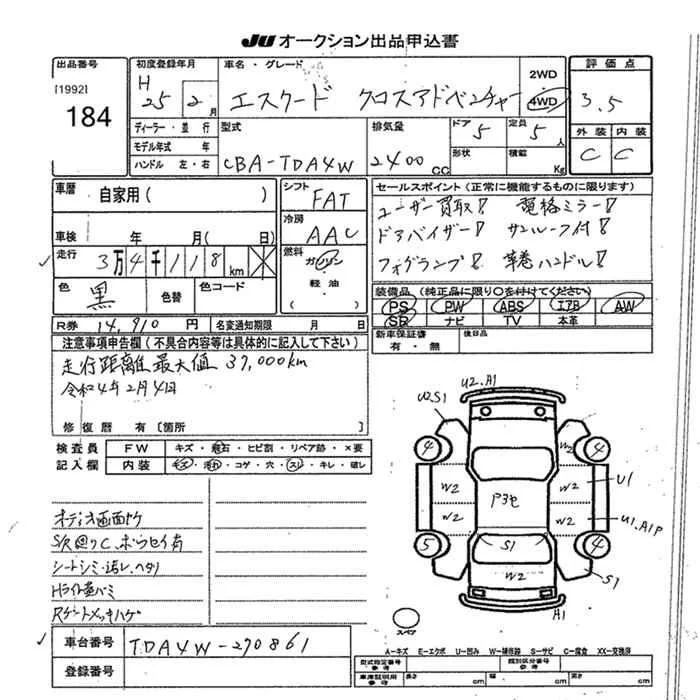 JU オークション出品申込書
出品番号 初度登録年月 車名・グレード 2WD 4WD 評価点
[1992]
184
H 25 2月 エスクード クロスアドベンチャー 3.5
ディーラー・並行 型式 排気量 ドア 5 定員 5人 外装 内装
モデル年式 年 形状 積載 Kg
ハンドル 左・右 CBA-TDA4W 2400cc C C
車歴 自家用( ) シフト FAT セールスポイント(正常に機能するものに限ります)
車検 年 月( 日) 冷房 AAC
ユーザー買取! 電格ミラー!
ドアバイザー! サンルーフ付!
フォグランプ! 革巻ハンドル!
走行 3万4千118km 燃料 ガソリン
・
軽油
色 黒 色替 色コード
装備品(純正品に限り○を付けてください)
PS PW ABS エアB AW
SR ナビ TV 本革
R券 14,910円 名変通知期限 月 日
新車保証書 有・無 後日品
注意事項申告欄(不具合内容等は具体的に記入して下さい)
走行距離最大値 37,000km
令和4年2月4日
修復歴 有〔箇所 〕
検査員 FW キズ・飛石・ヒビ割・リペア跡・×要
記入欄 内装 キズ・汚れ・コゲ・穴・スレ・キレ・破レ
オーディオ画面ボケ
シートシミ・汚レ、ヘタリ
Hライト黄バミ
車台番号 TDA4W-290861
登録番号
U2.A1
W2.S1
4 4
W2
U1
W2 W2
P3セ
W2 W2
U1.A1P
5 4
S1
W2
S1
A1
スペア
A-キズ E-エクボ U-凹み W-補修跡 S-サビ C-腐食 XX-交換済
型式指定番号 参考 類別区分番号 参考
車庫証明用 参考 長さ cm 幅 cm 高さ cm